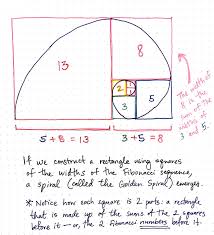 13
8
2
3
5
The width of
8 is the
sum of the
widths of
3 and 5.
5 + 8 = 13
3 + 5 = 8
If we construct a rectangle using squares
of the widths of the Fibonacci sequence,
a spiral (called the Golden Spiral) emerges.
* Notice how each square is 2 parts: a rectangle
that is made up of the sums of the 2 squares
before it — or, the 2 Fibonacci numbers before it.